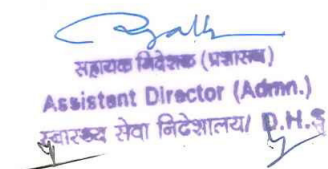 सहायक निदेशक (प्रशासन)
Assistant Director (Admn.)
स्वास्थ्य सेवा निदेशालय/ D.H.S